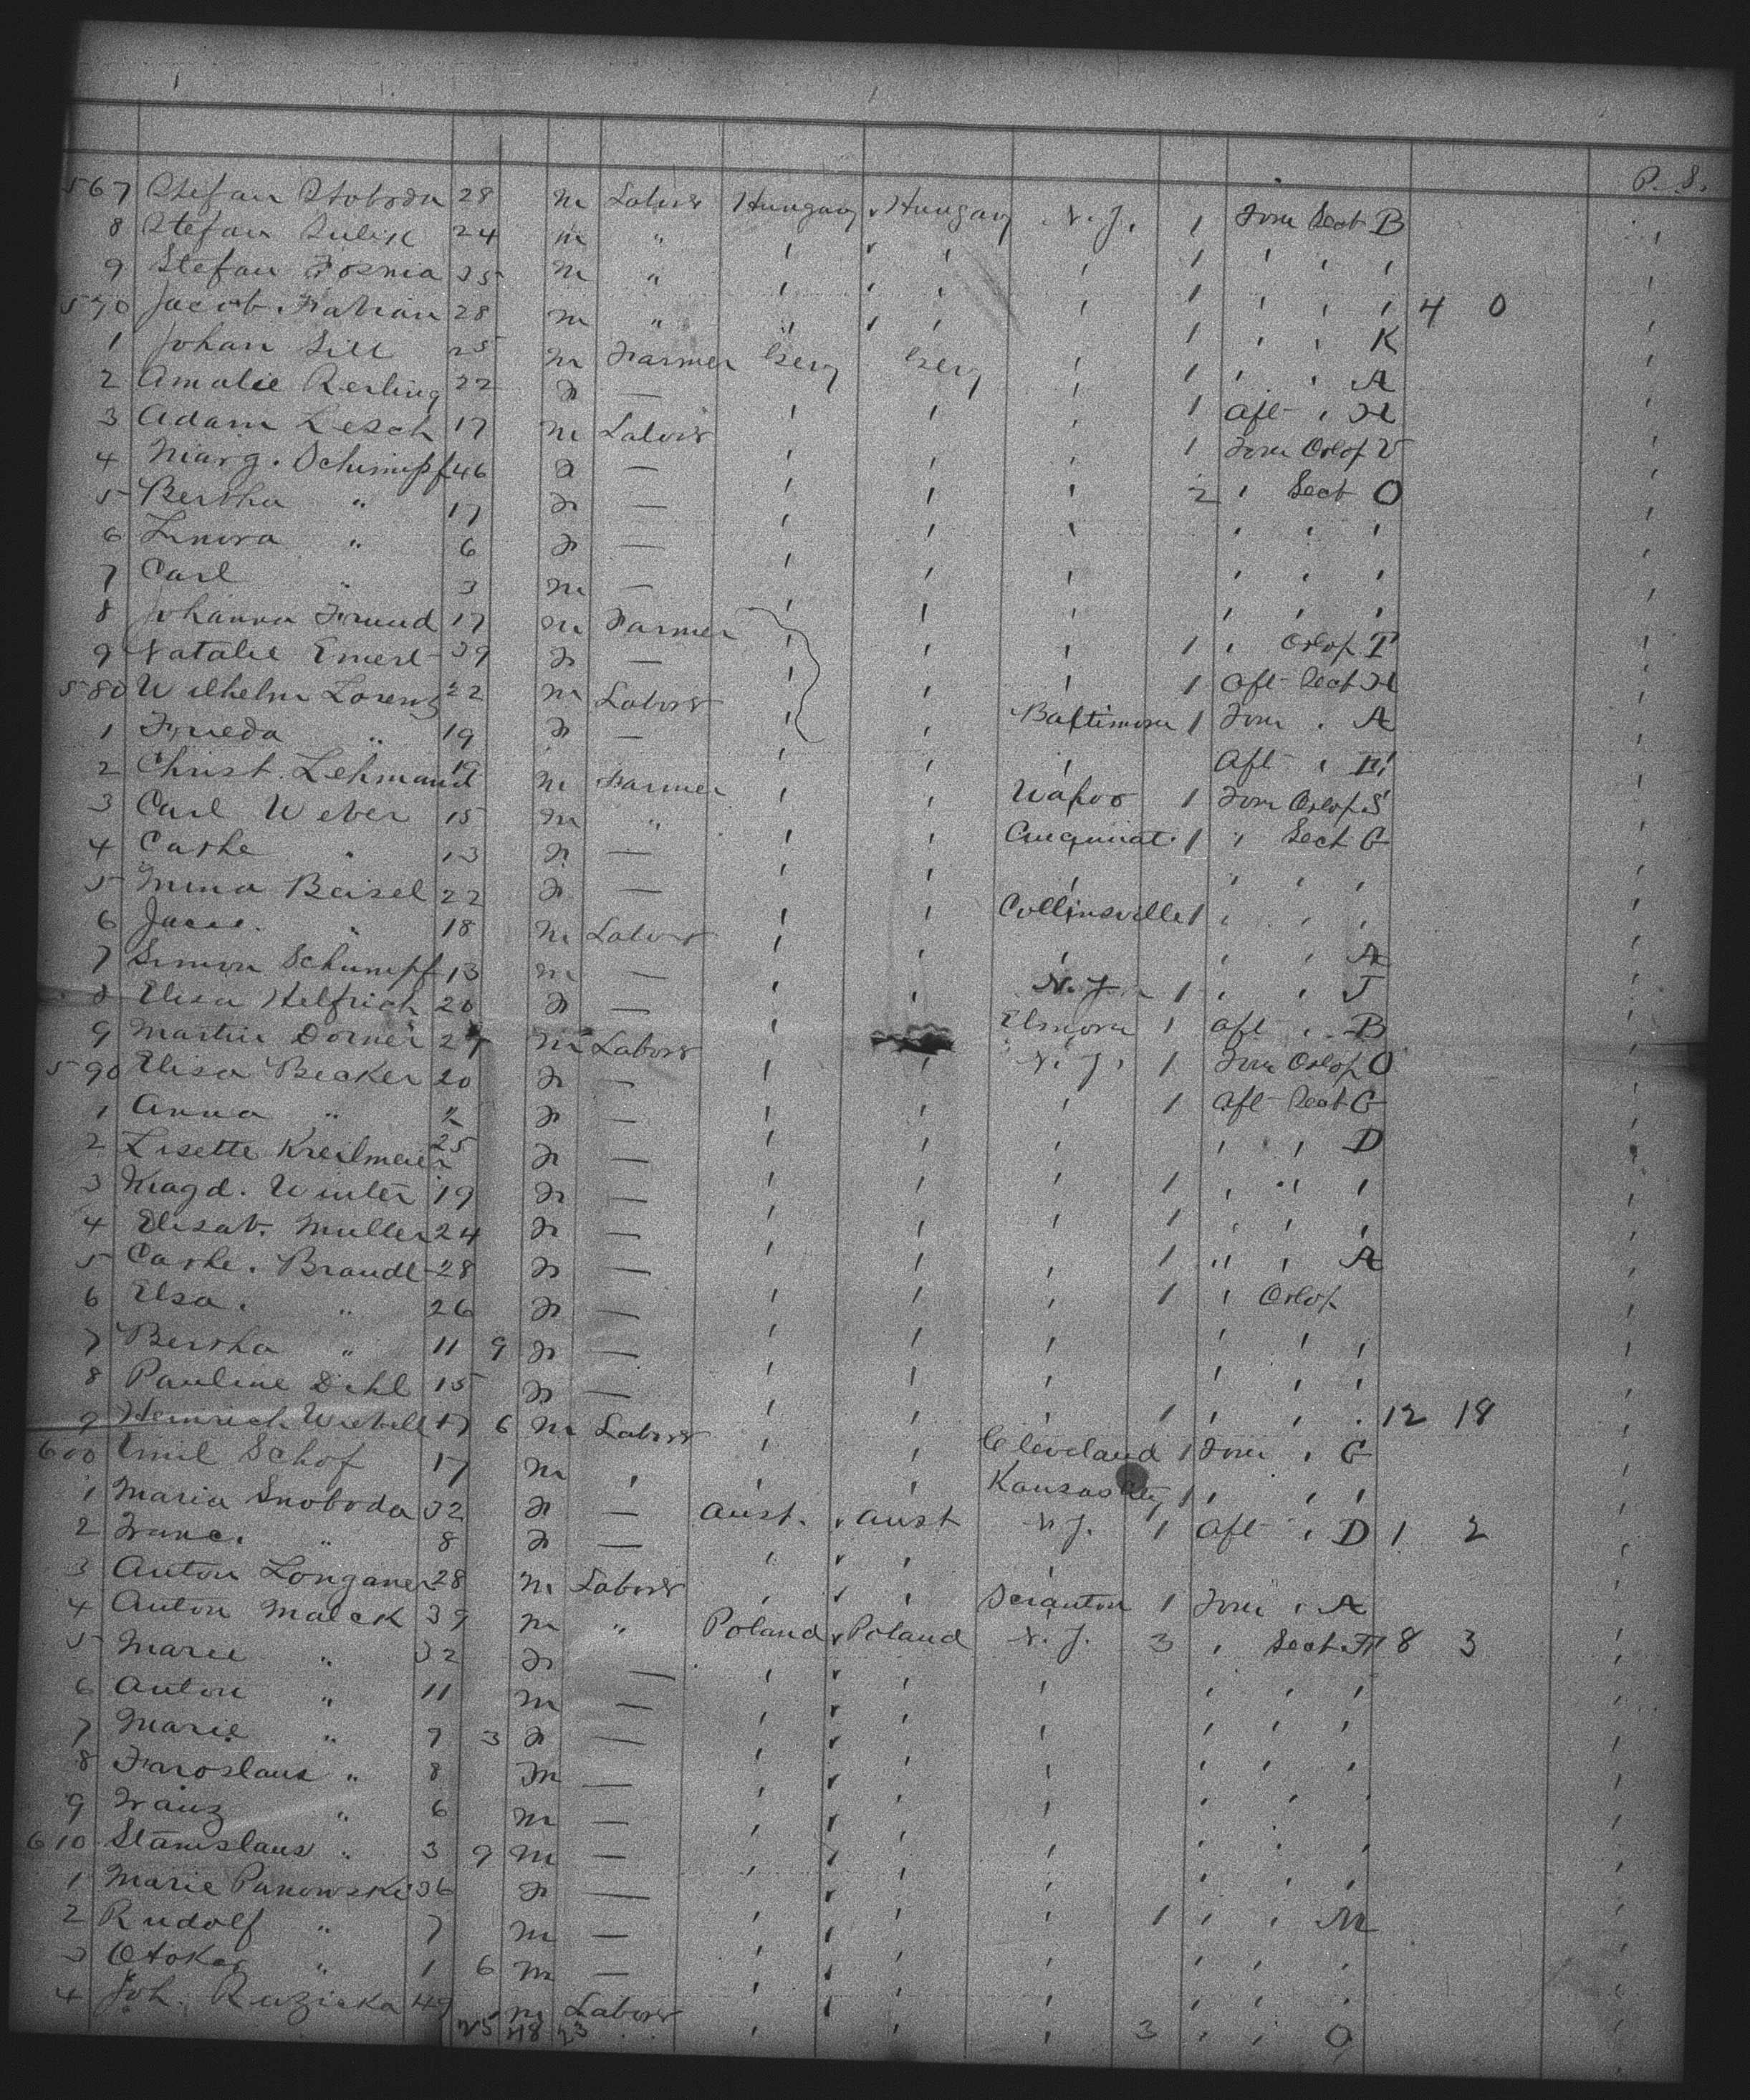 P. S.
567 Stefan Stoboda 28 m Labors Hungary Hungary N. J. 1 Forw Sect B
8 Stefan Sulik 24 m " ' ' ' 1 ' ' '
9 Stefan Fosnia 25 m " ' ' ' 1 ' ' ' 4 0
570 Jacob Fabian 28 m " " ' ' 1 ' ' K
1 Johan Sill 25 m Farmer Gery Gery ' 1 ' ' A
2 Amalie Resling 22 F — ' ' ' 1 Aft ' H
3 Adam Lesch 17 m Labors ' ' ' 1 Forw Orlop V
4 Marg. Schimpf 46 F — ' ' ' 2 ' Sect O
5 Bertha " 17 F — ' ' ' ' ' '
6 Linora " 6 F — ' ' ' ' ' '
7 Carl " 3 m — ' ' ' ' ' '
8 Johanna Freund 17 m Farmer ' ' ' 1 ' Orlop T
9 Natalie Emert 39 F — ' ' ' 1 Aft Sect H
580 Wilhelm Lorenz 22 m Labors ' ' Baltimore 1 Forw ' A
1 Frieda " 19 F — ' ' ' Aft ' H
2 Christ. Lehmann 19 m Farmer ' ' 1 Forw Orlop S
3 Carl Weber 15 m " ' ' 1 " Sect G
4 Cathe " 13 F — ' ' ' ' ' '
5 Mina Beisel 22 F — ' ' Collinsville 1 ' ' '
6 " 18 m Labors ' ' ' ' ' A
7 Simon Schumpf 13 m — ' ' N. J. 1 ' ' J
8 Elisa Helfrich 20 F — ' ' Elmora 1 Aft ' B
9 Martin Dorner 27 m Labors ' ' N. J. 1 Forw Orlop O
590 Elisa Becker 20 F — ' ' ' 1 Aft Sect G
1 Anna " 2 F — ' ' ' ' ' D
2 Lisette Kreilmeier 25 F — ' ' ' 1 ' " '
3 Magd. Winter 19 F — ' ' ' 1 ' ' '
4 Elisab. Muller 24 F — ' ' ' 1 " ' A
5 Cathe. Brandt 28 F — ' ' ' 1 ' Orlop
6 Elsa. " 26 F — ' ' ' ' ' '
7 Bertha " 11 9 F — ' ' ' ' ' '
8 Pauline Dehl 15 F — ' ' ' 1 ' ' ' 12 18
9 Heinrich 17 6 m Labors ' ' Cleveland 1 Forw ' G
600 Emil Schof 17 m ' ' ' Kansas City 1 ' ' '
1 Maria Snoboda 32 F — Aust. Aust N. J. 1 Aft ' D 1 2
2 Franc. " 8 F — ' ' '
3 Anton Longaner 28 m Labors ' ' Scranton 1 Forw ' A
4 Anton Malek 39 m " Poland Poland N. J. 3 ' Sect H 8 3
5 Marie " 32 F — ' ' ' ' ' '
6 Anton " 11 m — ' ' ' ' ' '
7 Marie " 9 3 F — ' ' ' ' ' '
8 Jaroslaus " 8 m — ' ' ' ' ' '
9 Franz " 6 m — ' ' ' ' ' '
610 Stanislaus " 3 9 m — ' ' ' ' ' '
1 Marie Panowski 36 F — ' ' ' 1 ' ' M
2 Rudolf " 7 m — ' ' ' ' ' '
3 Otokar " 1 6 m — ' ' ' ' ' '
4 Joh. Ruzicka 49 m Labors ' ' ' 3 ' ' O
25 48 23